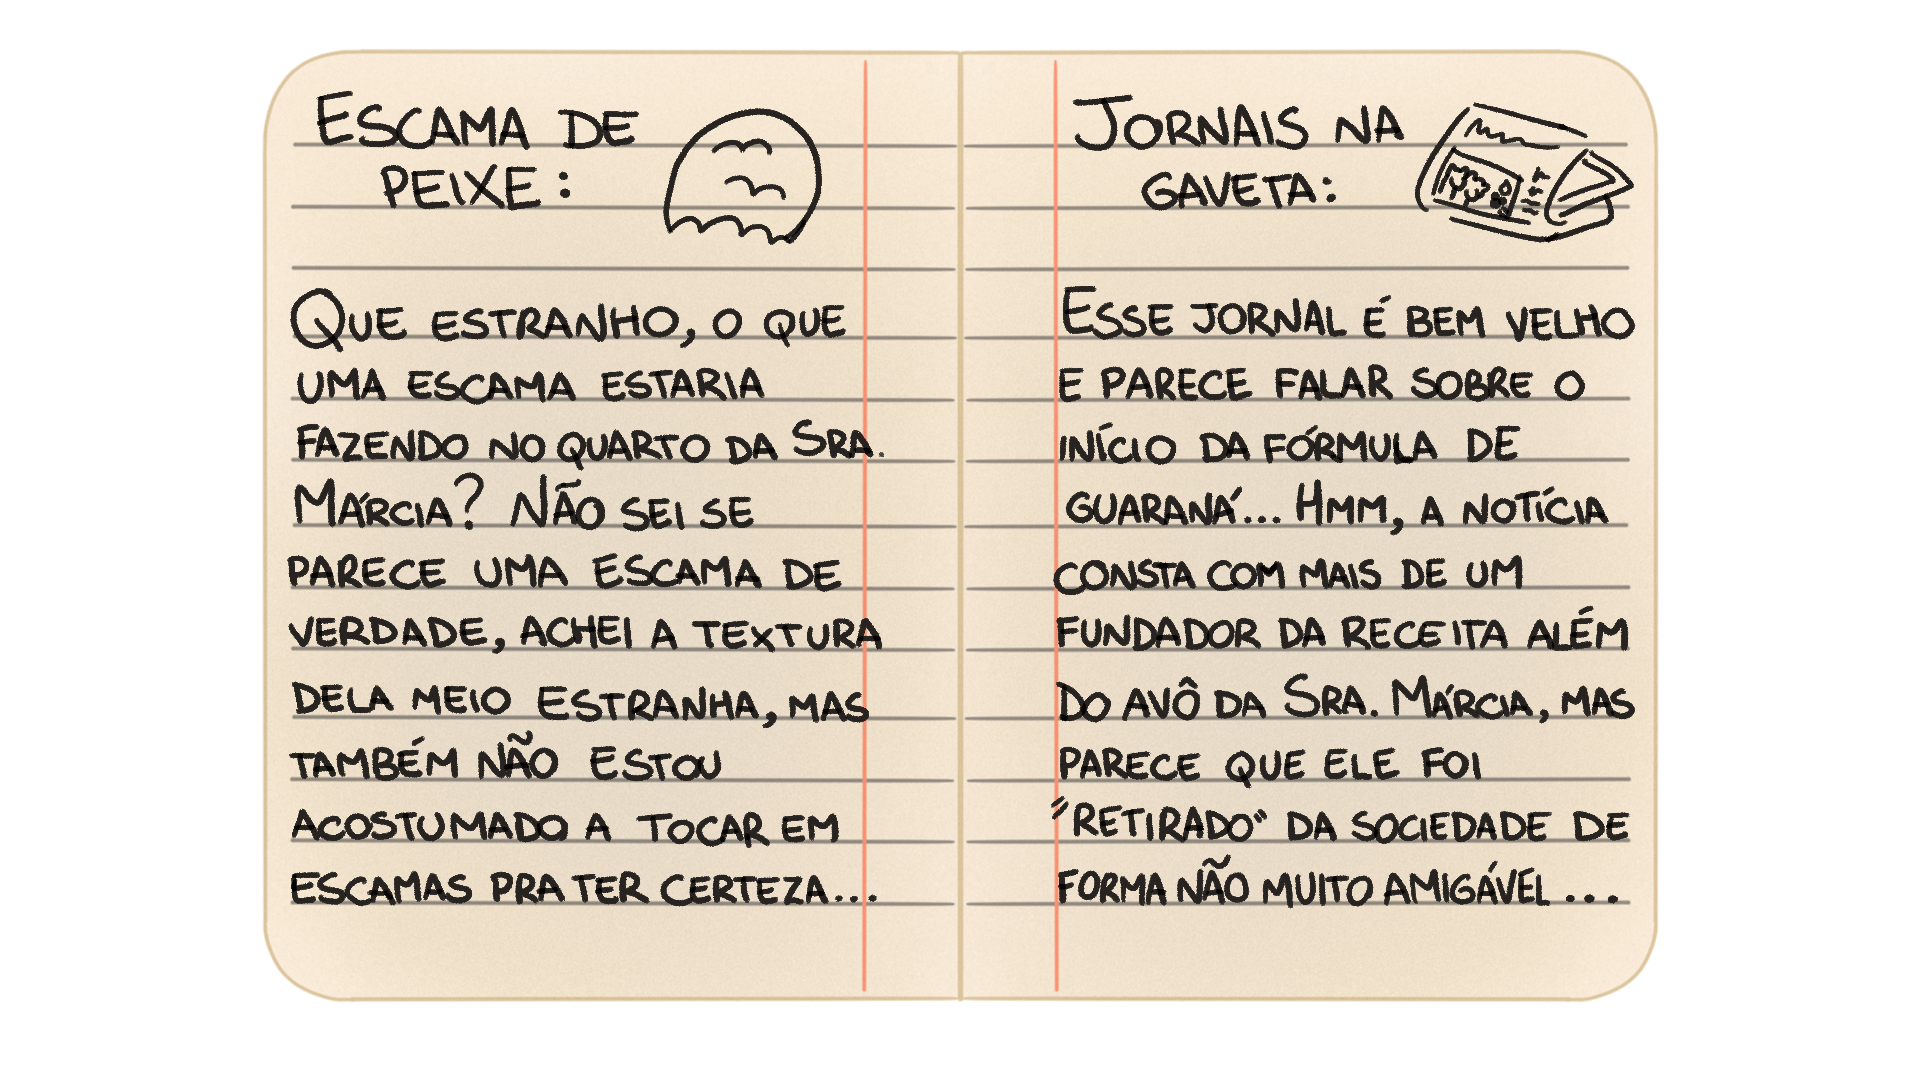 ESCAMA DE
PEIXE:
QUE ESTRANHO, O QUE
UMA ESCAMA ESTARIA
FAZENDO NO QUARTO DA SRA.
MÁRCIA? NÃO SEI SE
PARECE UMA ESCAMA DE
VERDADE, ACHEI A TEXTURA
DELA MEIO ESTRANHA, MAS
TAMBÉM NÃO ESTOU
ACOSTUMADO A TOCAR EM
ESCAMAS PRA TER CERTEZA...
JORNAIS NA
GAVETA:
ESSE JORNAL É BEM VELHO
E PARECE FALAR SOBRE O
INÍCIO DA FÓRMULA DE
GUARANÁ... HMM, A NOTÍCIA
CONSTA COM MAIS DE UM
FUNDADOR DA RECEITA ALÉM
DO AVÔ DA SRA. MÁRCIA, MAS
PARECE QUE ELE FOI
"RETIRADO" DA SOCIEDADE DE
FORMA NÃO MUITO AMIGÁVEL...